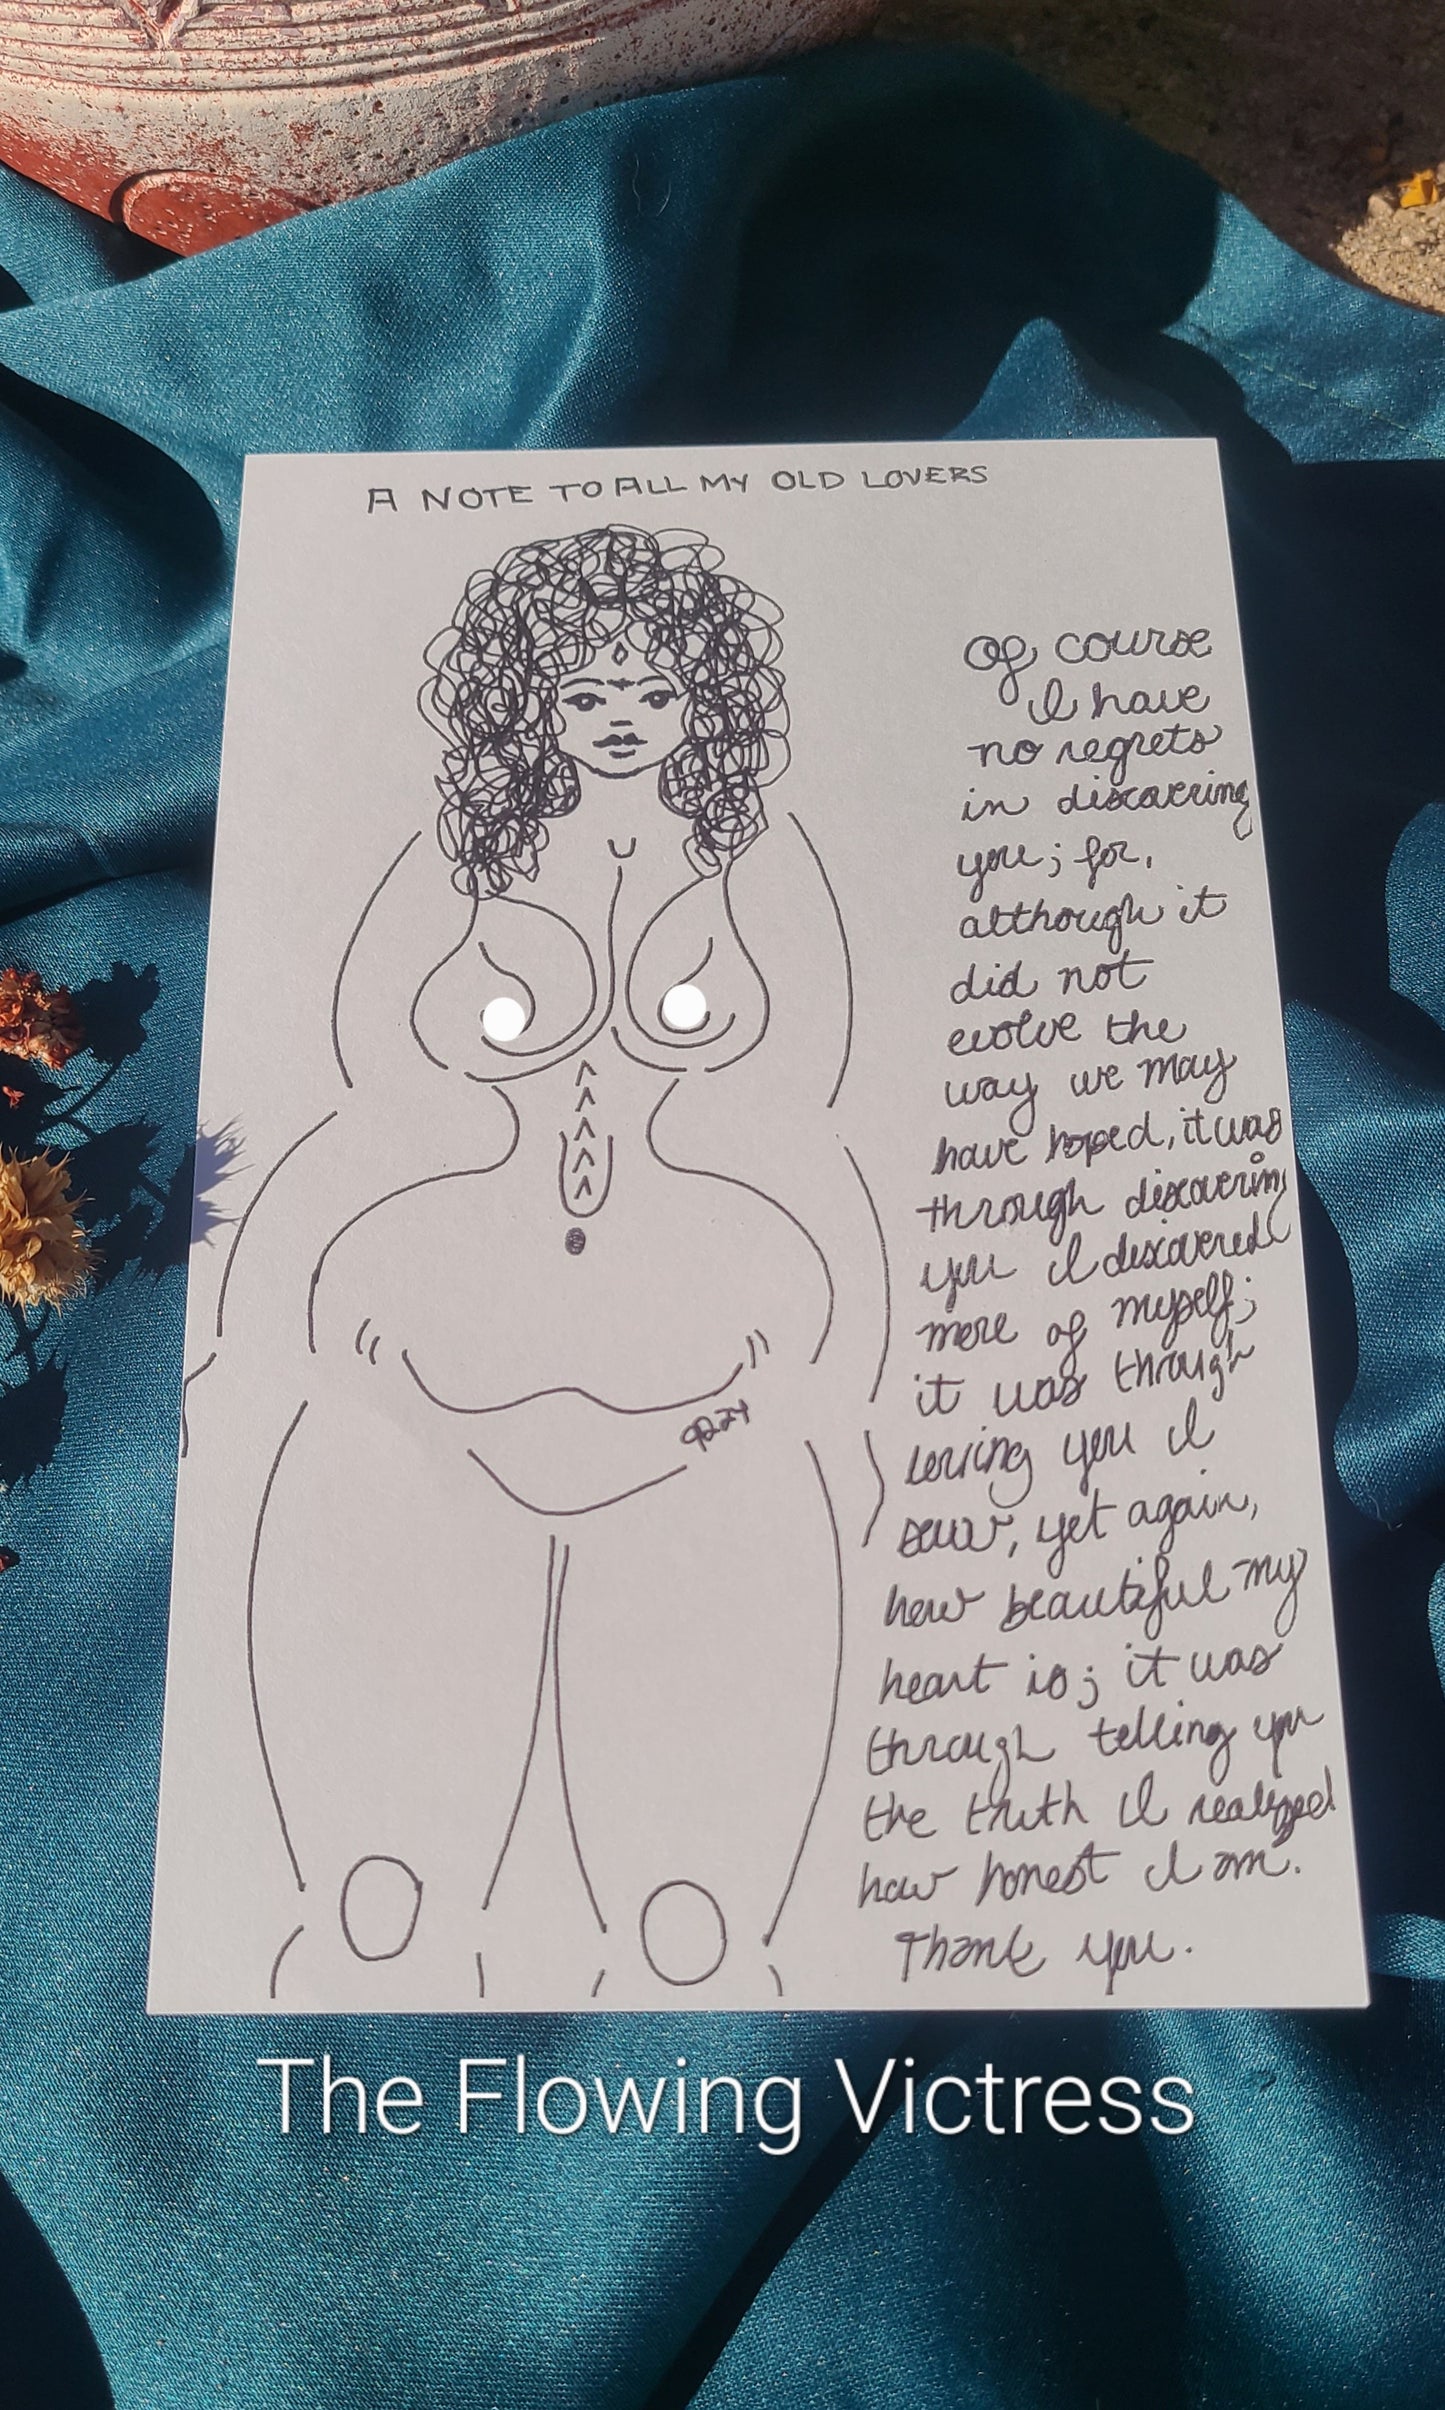 A NOTE TO ALL MY OLD LOVERS
Of course
I have
no regrets
in discovering
you; for,
although it
did not
evolve the
way we may
have hoped, it was
through discovering
you I discovered
more of myself;
it was through
loving you I
saw, yet again,
how beautiful my
heart is; it was
through telling you
the truth I realized
how honest I am.
Thank you.
The Flowing Victress